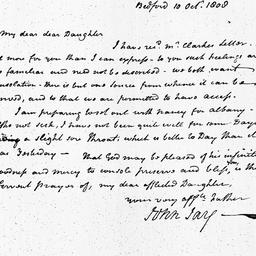 Bedford 10 Oct.r 1808
My dear dear Daughter
I have rec.d Mr. Clarkes Letter.
more for you than I can express. to you such feelings are
familiar and need not be described. we both want
consolation. there is but one source from whence it can be
and to that we are permitted to have access.
I am preparing to set out with Nancy for Albany.
not sick, I have not been quite well for some Days
a slight sore Throat, which is better to Day than it
was Yesterday — that God may be pleased of his infinite
goodness and mercy to console preserve and bless, is the
fervent Prayer of, my dear afflicted Daughter,
your very affte. Father
John Jay —